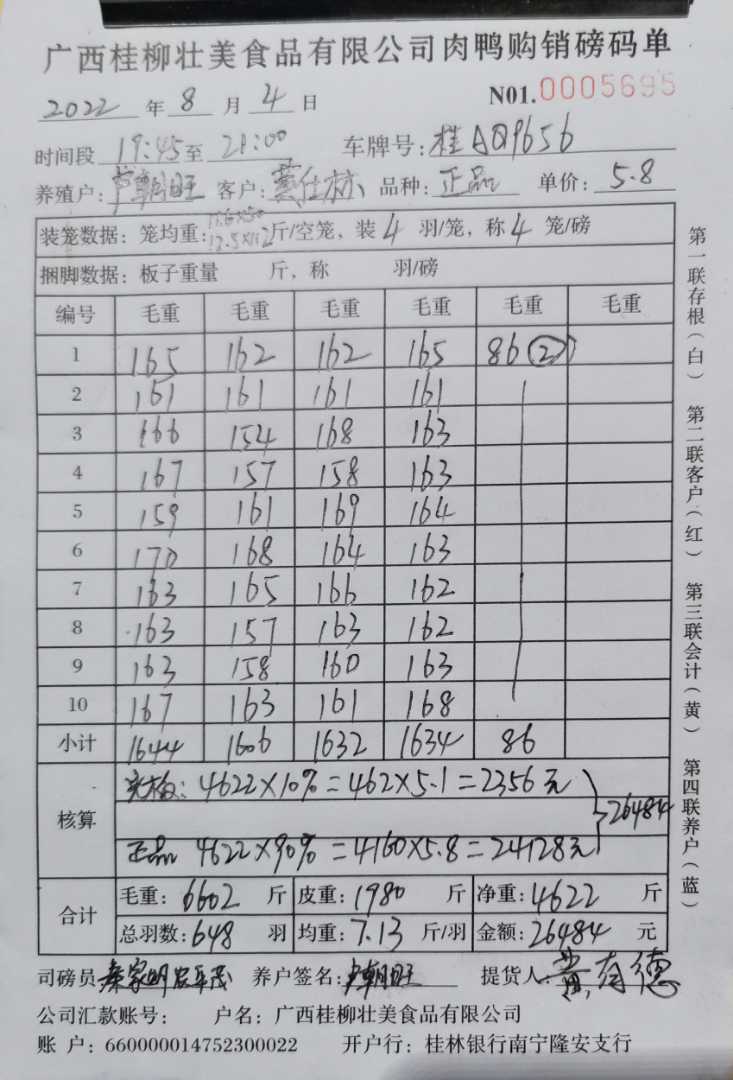 广西桂柳壮美食品有限公司肉鸭购销磅码单
2022 年 8 月 4 日 N01.0005695
时间段 19:45 至 21:00 车牌号:桂AQ9656
养殖户:卢朝旺 客户:黄仕林 品种:正品 单价:5.8
11.6×50
装笼数据:笼均重:12.5×112斤/空笼,装4羽/笼,称4笼/磅
捆脚数据:板子重量 斤,称 羽/磅
编号 毛重 毛重 毛重 毛重 毛重 毛重
1 165 162 162 165 86②
2 161 161 161 161
3 166 154 168 163
4 167 157 158 163
5 159 161 169 164
6 170 168 164 163
7 163 165 166 162
8 163 157 163 162
9 163 158 160 163
10 167 163 161 168
小计 1644 1606 1632 1634 86
核算
4622×10%=462×5.1=2356元
正品 4622×90%=4160×5.8=24128元
26484
合计
毛重:6602 斤 皮重:1980 斤 净重:4622 斤
总羽数:648 羽 均重:7.13 斤/羽 金额:26484 元
司磅员 养户签名:卢朝旺 提货人:黄有德
公司汇款账号: 户名:广西桂柳壮美食品有限公司
账 户:660000014752300022 开户行:桂林银行南宁隆安支行
第一联存根(白) 第二联客户(红) 第三联会计(黄) 第四联养户(蓝)